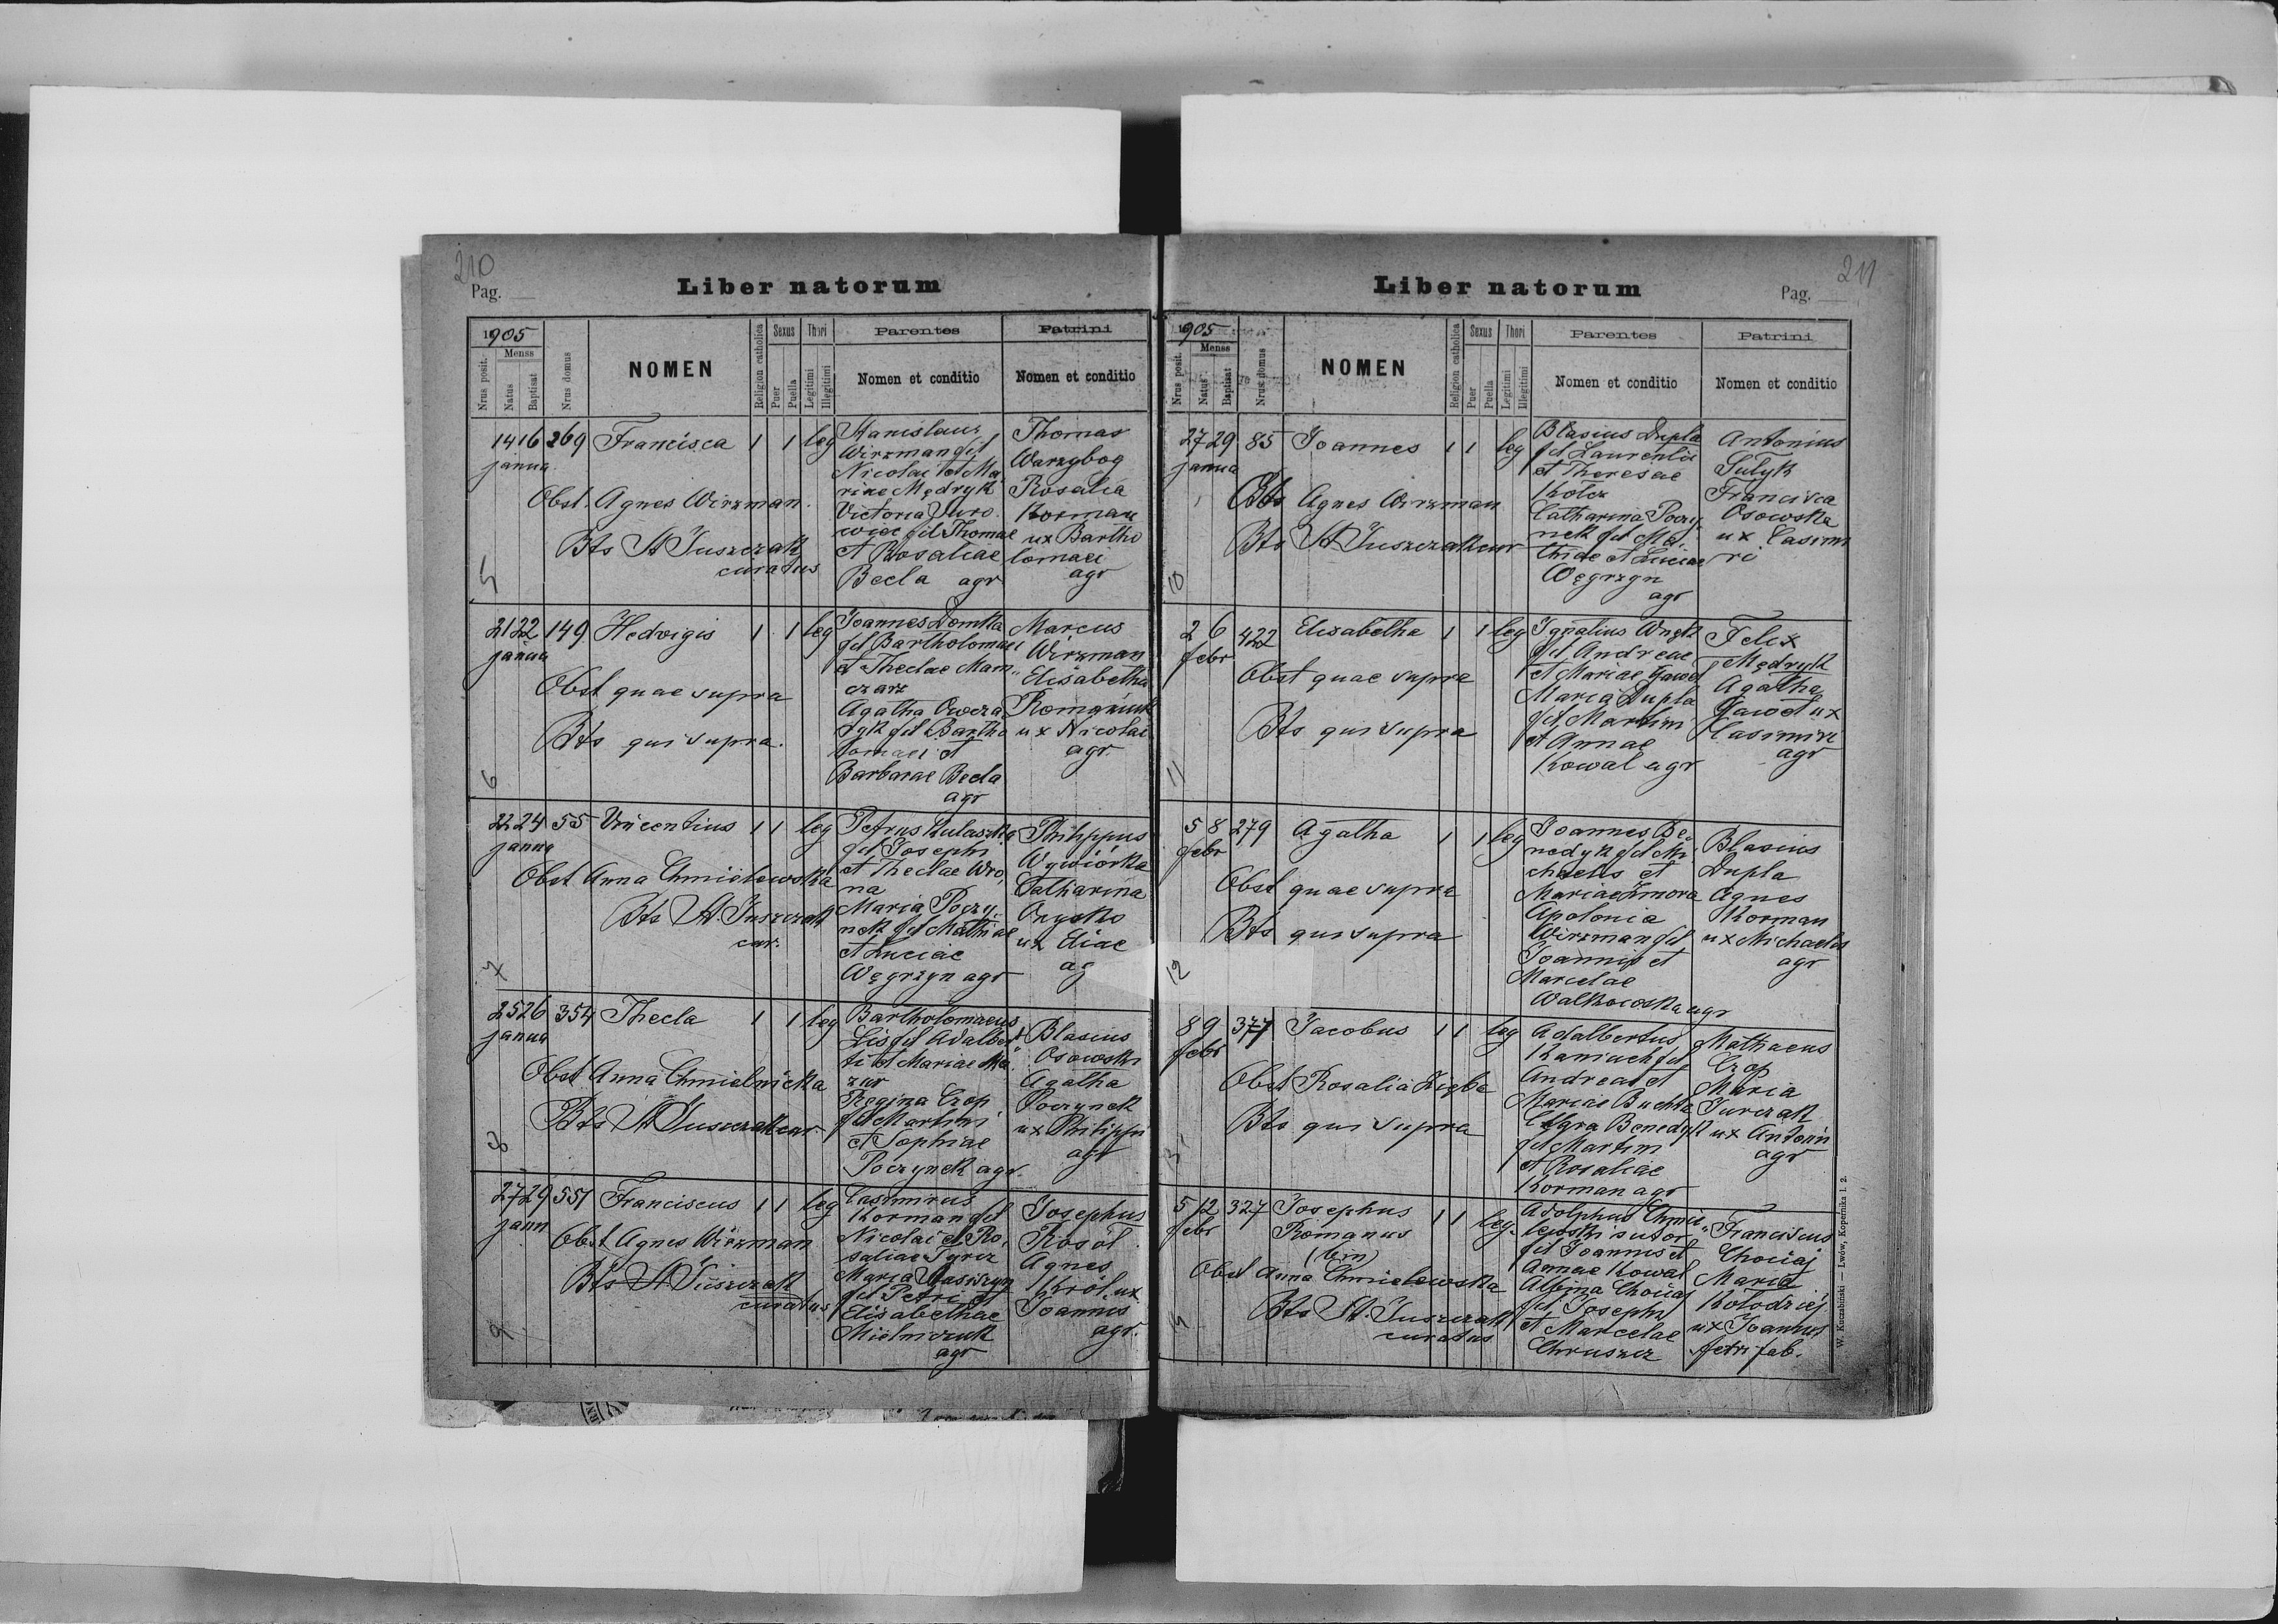 210
Pag.
Liber natorum
1905
Nrus posit.
Menss
Natus
Baptisat
Nrus domus
NOMEN
Religion catholica
Sexus
Puer
Puella
Thori
Legitimi
Illegitimi
Parentes
Nomen et conditio
Patrini
Nomen et conditio
5
14 16 269 Francisca 1 1 leg
janua
Obst. Agnes Wirzman
Bts St Juszczak
curatus
Stanislaus
Wirzman fil
Nicolai et Ma
riae Mędryk
Victoria Juro
wicz fil Thomae
et Rosaliae
Becla agr
Thomas
Warzybog
Rosalia
Korman
ux Bartho
lomaei
agr
6
21 22 149 Hedvigis 1 1 leg
janua
Obst quae supra
Bts qui supra.
Joannes Domka
fil Bartholomaei
et Theclae Mam
czarz
Agatha Owcza
ryk fil Bartho
lomaei et
Barbarae Becla
agr
Marcus
Wirzman
Elisabetha
ux Nicolai
agr.
7
22 24 55 Vincentius 1 1 leg
janua
Obst Anna Chmielewska
Bts St. Juszczak
cur.
Petrus Kulaszka
fil Josephi
et Theclae Wro
na
Maria Poczy
nek fil Mathiae
et Luciae
Węgrzyn agr
Philippus
Wywiórka
Catharina
Oryszko
ux Eliae
ag
8
25 26 354 Thecla 1 1 leg
janua
Obst Anna Chmielnicka
Bts St Juszczak cur.
Bartholomaeus
Lis fil Adalber
ti et Mariae Ma
zur
Regina Czop
fil Martini
et Sophiae
Poczynek agr.
Blasius
Osowski
Agatha
Poczynek
ux Philippi
agr
9
27 29 551 Franciscus 1 1 leg
janu
Obst Agnes Wirzman
Bts St Juszczak
curatus
Casimirus
Korman fil
Nicolai et Ro
saliae Tyrcz
Maria Wasiszyn
fil Petri et
Elisabethae
Mielniczuk
agr
Josephus
Rosół
Agnes
Król ux
Joannis
agr.
211
Liber natorum
Pag.
1905
Nrus posit.
Menss
Natus
Baptisat
Nrus domus
NOMEN
Religion catholica
Sexus
Puer
Puella
Thori
Legitimi
Illegitimi
Parentes
Nomen et conditio
Patrini
Nomen et conditio
10
27 29 85 Joannes 1 1 leg
janua
Obs Agnes Wirzman
Bts St Juszczak cur
Blasius Dupla
fil Laurentii
et Theresae
Kołcz
Catharina Poczy
nek fil Ma
thiae et Luciae
Węgrzyn
agr
Antonius
Francisca
Osowska
ux Casimi
ri
11
2 6 422 Elisabetha 1 1 leg
febr
Obst quae supra
Bts qui supra
Ignatius Wnęk
fil Andreae
et Mariae Gaweł
Maria Dupla
fil Martini
et Annae
Kowal agr
Felix
Mędryk
Agatha
Gaweł ux
Casimiri
agr
12
5 8 279 Agatha 1 1 leg
febr
Obst quae supra
Bts qui supra
Joannes Be
nedyk fil Mi
chaelis et
Mariae Zmora
Apolonia
Wirzman fil
Joannis et
Marcelae
Walkowska agr
Blasius
Dupla
Agnes
Korman
ux Michaelis
agr
13
8 9 377 Jacobus 1 1 leg
febr
Obst Rosalia Zięba
Bts qui supra
Adalbertus
Kaniuch fil
Andreae et
Mariae Buchta
Benedyk
fil Martini
et Rosaliae
Korman agr
Mathaeus
Czop
Maria
Jurczak
ux Antonii
agr
5 12 327 Josephus 1 1 leg.
febr
Romanus
(bin)
Obst Anna Chmielewska
Bts St. Juszczak
curatus
Adolphus Chmie
lewski sutor
fil Joannis et
Annae Kowal
Albina Chociaj
fil Josephi
et Marcelae
Chruszcz
Franciscus
Chociaj
Maria
Kołodziej
ux Joannis
fab.
W. Koczabiński — Lwów, Kopernika l. 2.